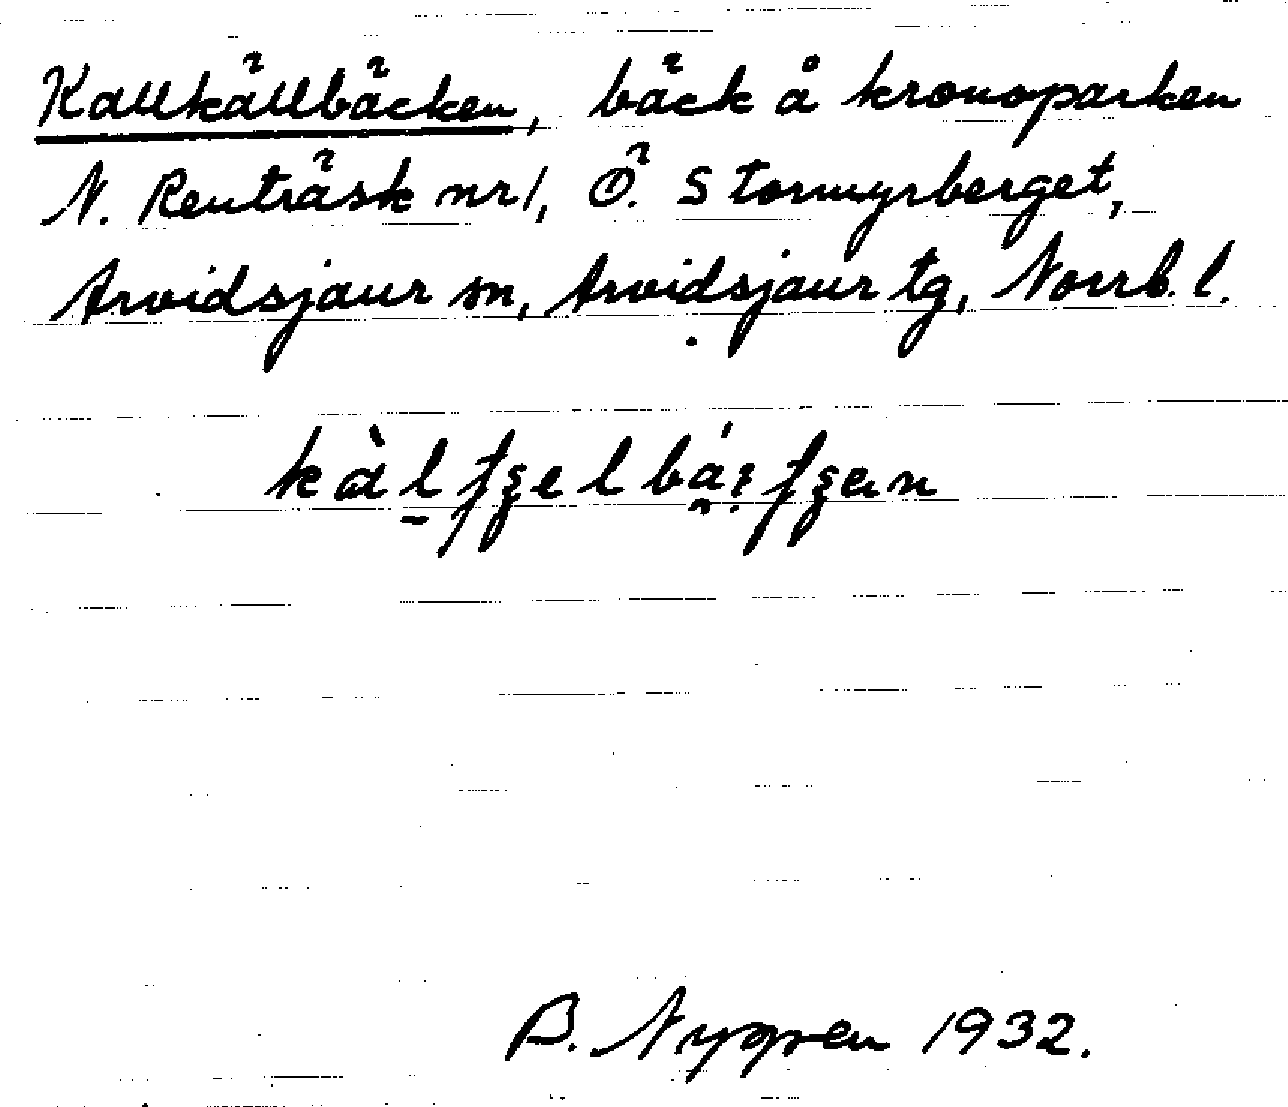 Kallkällbäcken, bäck å kronoparken
N. Renträsk nr 1, Ö. Stormyrberget,
Arvidsjaur sn, Arvidsjaur tg, Norrb. l.
B. Nygren 1932.